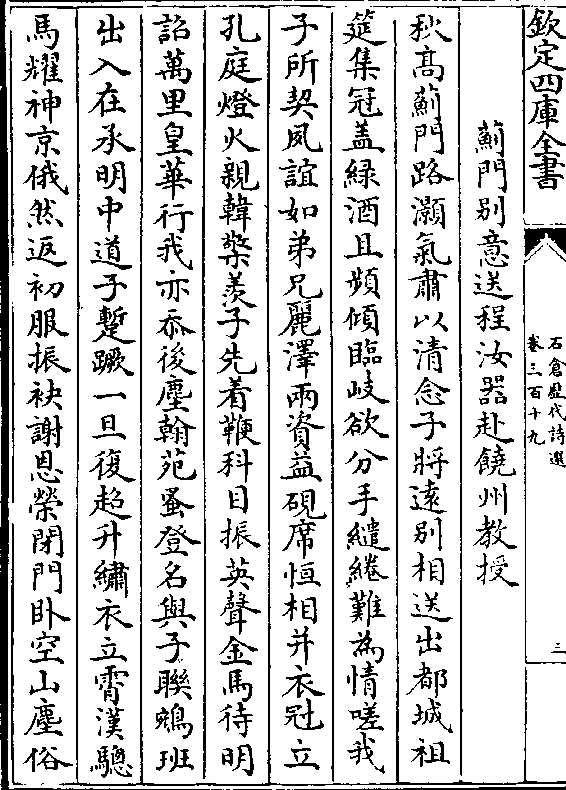 欽定四庫全書
石倉歷代詩選
卷三百十九
三
薊門別意送程汝器赴饒州教授
秋髙薊門路灝氣肅以清念子將遠別相送出都城祖
筵集冠盖緑酒且頻傾臨岐欲分手繾綣難為情嗟我
子所契夙誼如弟兄麗澤兩資益硯席恒相并衣冠立
孔庭燈火親韓檠羨子先着鞭科目振英聲金馬待明
詔萬里皇華行我亦忝後塵翰苑蚤登名與子聨鵷班
出入在承明中道子蹔蹶一旦復超升繡衣立霄漢驄
馬耀神京俄然返初服振袂謝恩榮閉門卧空山塵俗